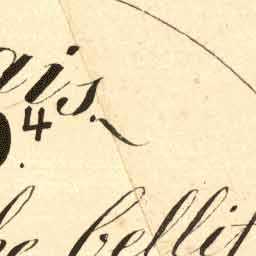 ais.
4
he bellit